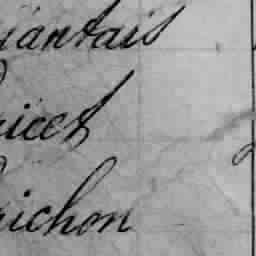 iantais
ricet
richon